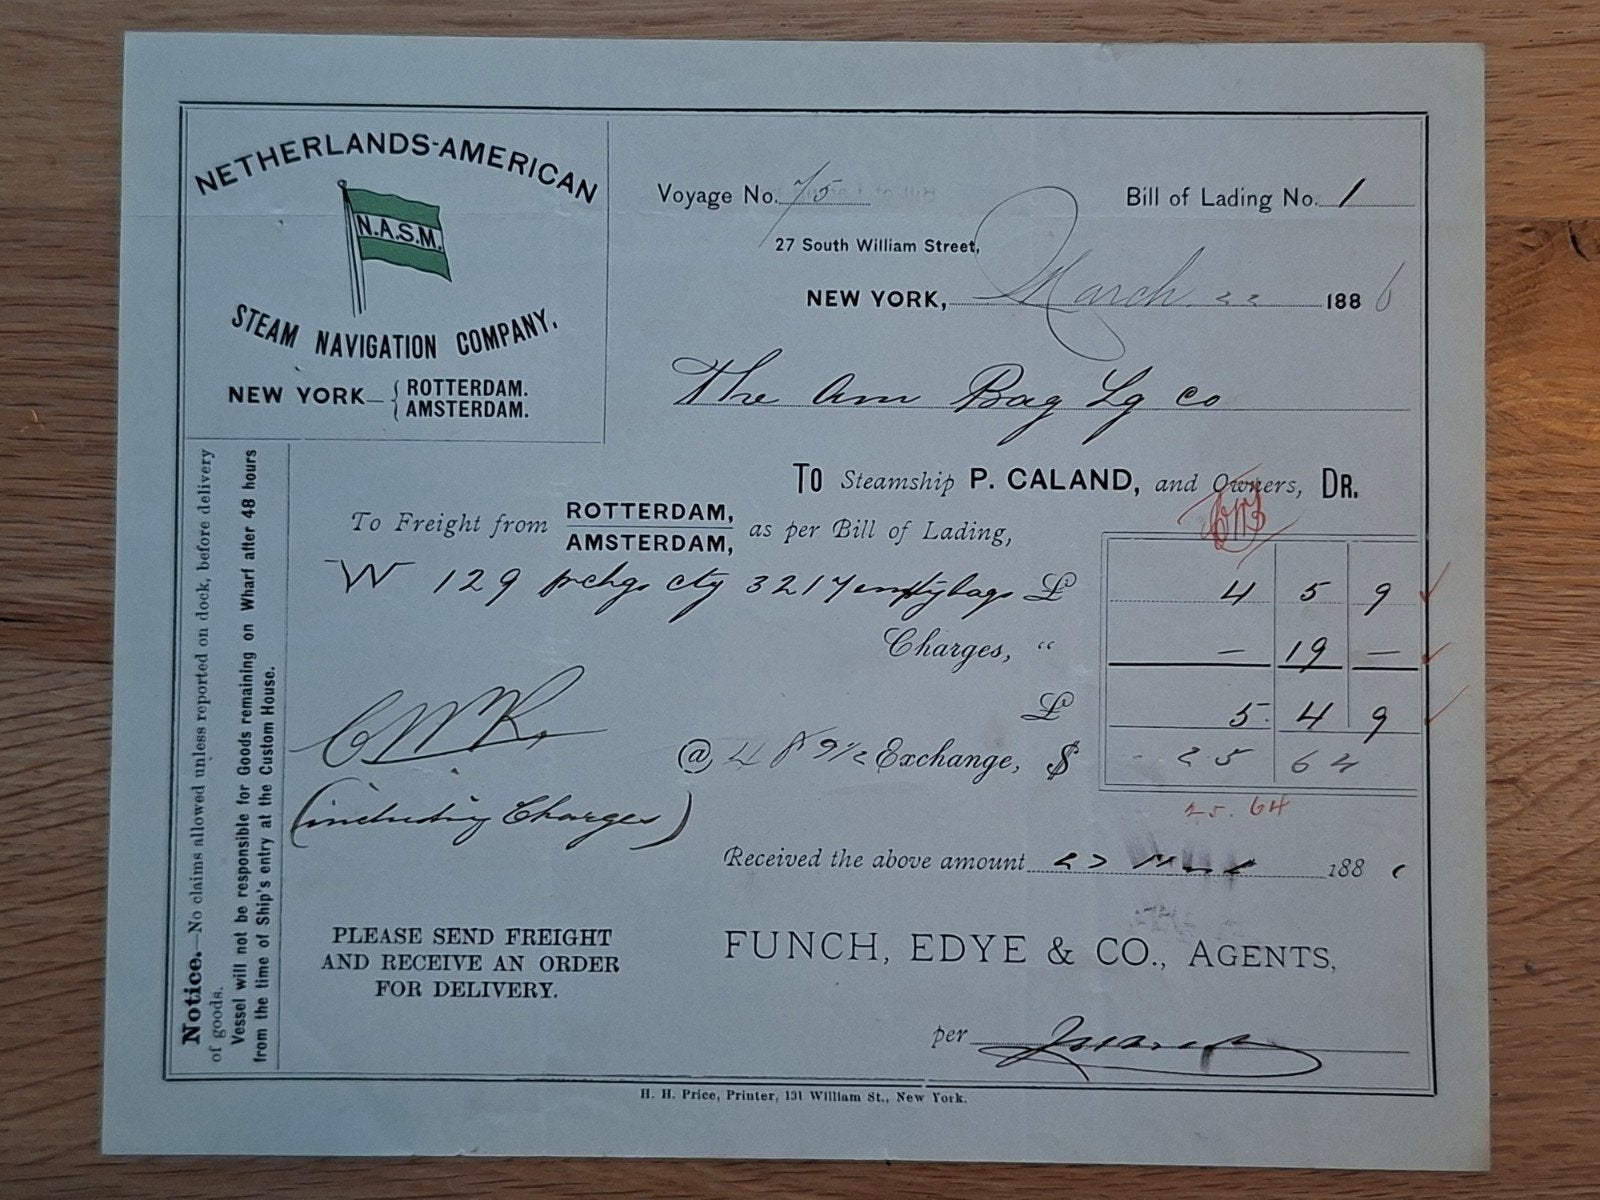 NETHERLANDS-AMERICAN
N.A.S.M.
STEAM NAVIGATION COMPANY.
NEW YORK— { ROTTERDAM.
AMSTERDAM.
Voyage No. 75
Bill of Lading No. 1
27 South William Street,
NEW YORK, March 22 1886
The Am Bag Lg Co
TO Steamship P. CALAND, and Owners, DR.
To Freight from ROTTERDAM, AMSTERDAM, as per Bill of Lading,
W 129 pckgs ctg 3217 empty bags £ 4 5 9
Charges, “ — 19 —
£ 5. 4 9
@ 4 8 9 1/2 Exchange, $ 25 64
25.64
(including Charges)
Received the above amount 188
PLEASE SEND FREIGHT
AND RECEIVE AN ORDER
FOR DELIVERY.
FUNCH, EDYE & CO., AGENTS,
per
Notice.—No claims allowed unless reported on dock, before delivery
of goods.
Vessel will not be responsible for Goods remaining on Wharf after 48 hours
from the time of Ship's entry at the Custom House.
H. H. Price, Printer, 131 William St., New York.